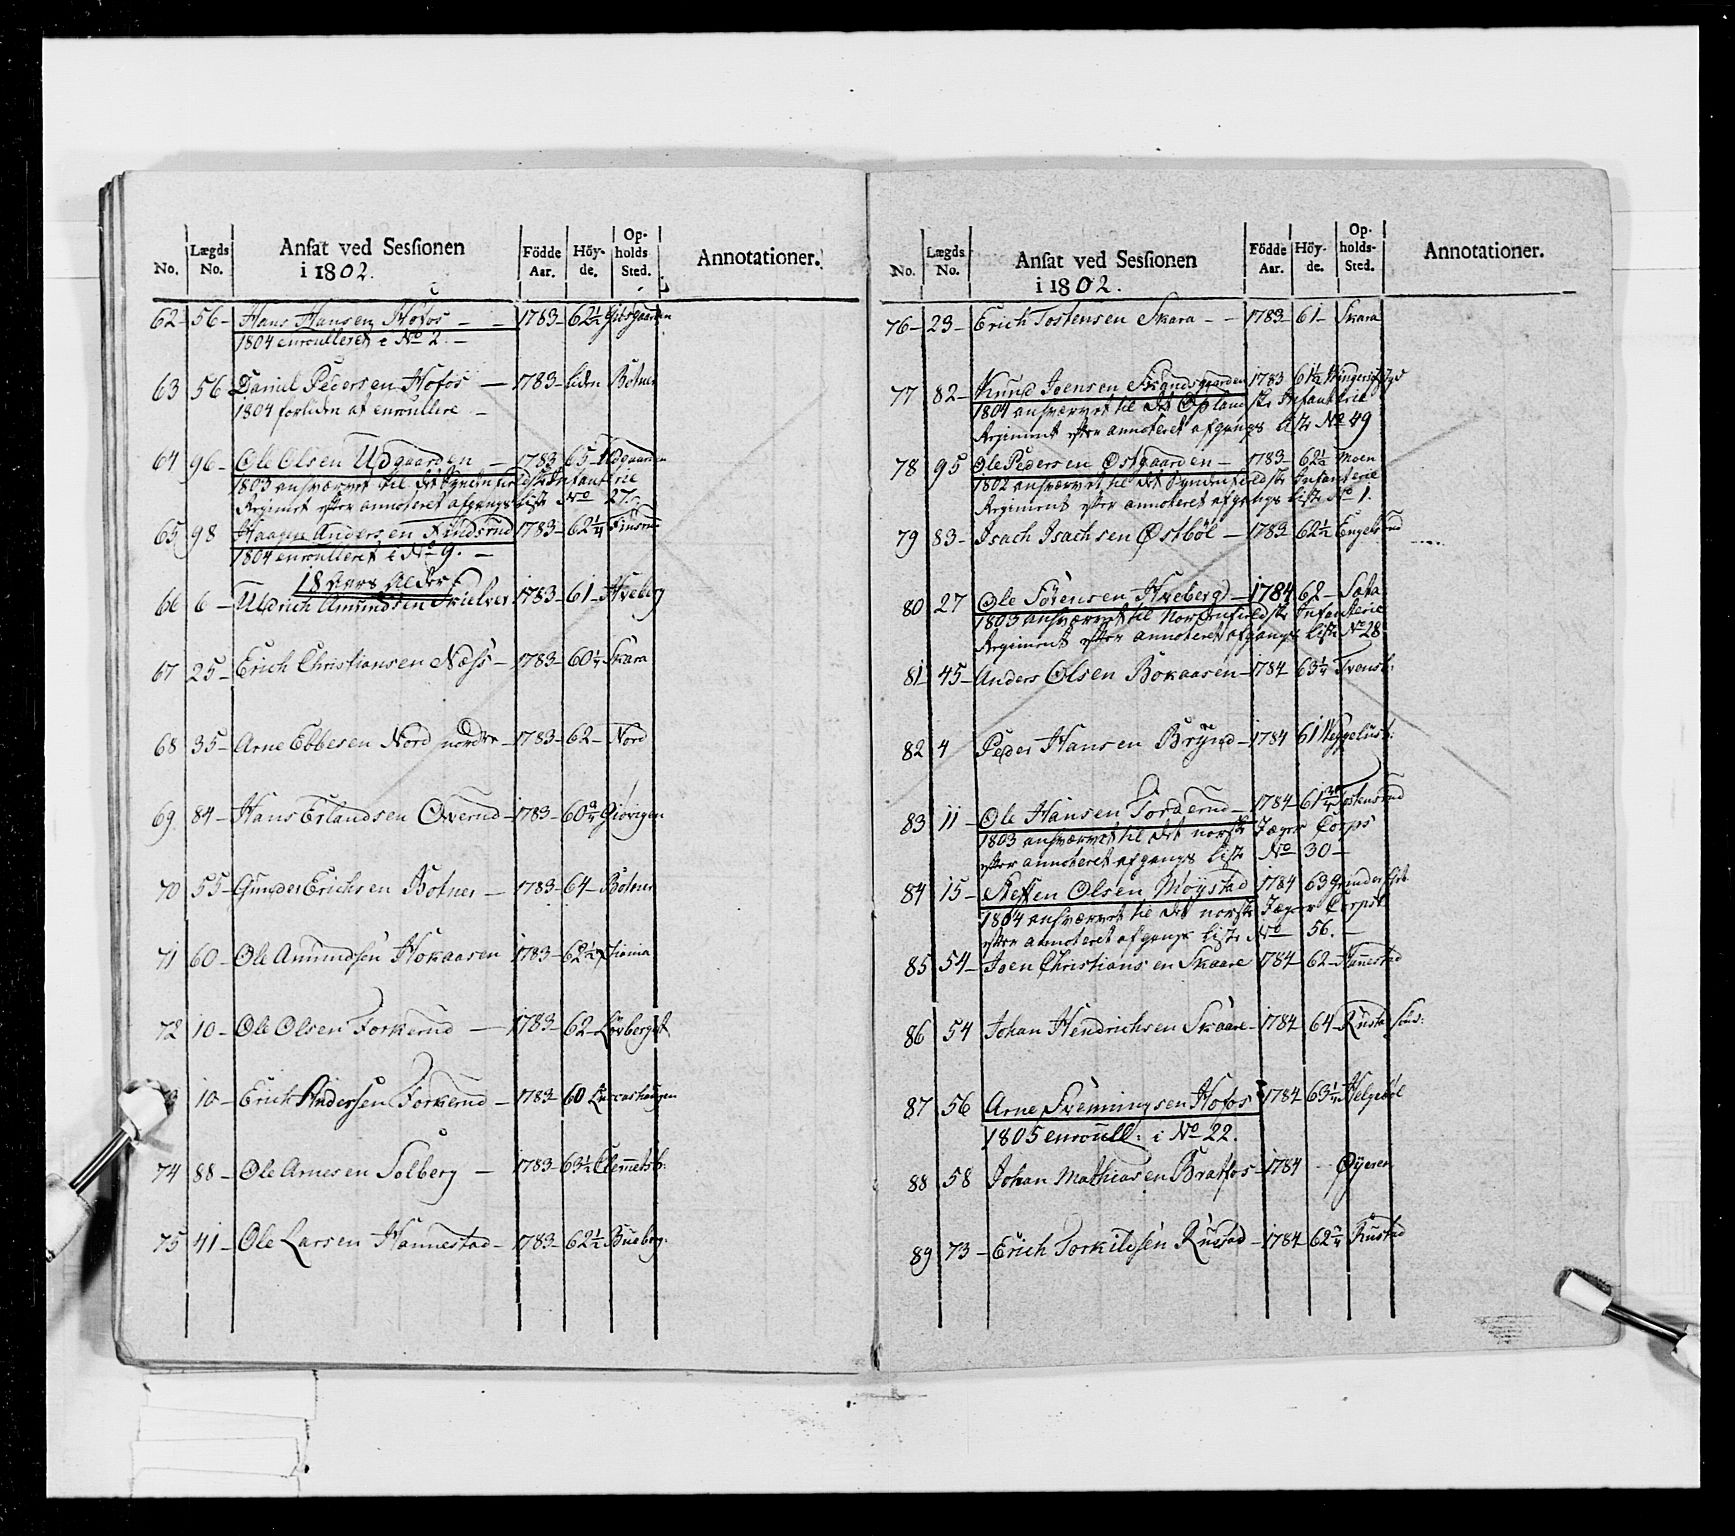 No. Lægds No. Ansat ved Sessionen i 1802. Födde Aar. Höy- de. Op- holds Sted. Annotationer.
62- 56- Hans Hansen Hofos - - 1783- 62½
1804 enroulleret i No 2. -
63 56 Daniel Pedersen Hofos - 1783- liden Botner
1804 forliden at enroullere -
64 96- Ole Olsen Udgaarden - 1783 65- Udgaarden
1803 anhværvet til det Syndenfieldske Infanterie
Regimet efter annoteret afgangs liste No 27.
65 98 Haagen Andersen Findsrud 1783- 62¼
1804 enroulleret i No 9. -
18 Aars Alder
66 6- Uldrich Amundsen 1783- 61- Hveberg
67 25- Erich Christiansen Næss- 1783- 60¼ Skara
68 35- Arne Ebbesen Nord nordre- 1783- 62- Nord
69. 84- Hans Erlandsen Overud- 1783- 60¾ Giövigen
70 55- Gunder Erichsen Botner - 1783- 64- Botner
71 60- Ole Amundsen Hokaasen 1783- 62½
72 10- Ole Olsen Forkerud - 1783- 62- Lövberget
10- Erich Andersen Forkerud - 1783- 60 Luccashaugen
74 88- Ole Arnesen Solberg - 1783- 63½ Clemetsb:
75 41- Ole Larsen Hannestad- 1783- 62½ Bueberg.
No. Lægds No. Ansat ved Sessionen i 1802. Födde Aar. Höy- de. Op- holds- Sted. Annotationer.
76- 23- Erich Tostensen Skara - - 1783- 61- Skara
77 82- Knud Joensen 1783 61½
1804 anhværvet til det Oplandske Infanterie
Regiment efter annoteret afgangs liste No 49
78 95 Ole Pedersen Østgaarden- 1783- 62½ Moen
1802 anhværvet til det Syndenfieldske Infanterie
Regiment efter annoteret afgangs liste No 1.
79 83- Isach Isachsen Østböl - 1783- 62½ Engelsrud
80 27 Ole Sörensen Hveberg - 1784 62- Sata
1803 anhværvet til Nordenfieldske Infanterie
Regiment efter annoteret afgangs liste No 28
81 45- Anders Olsen Bokaasen- 1784 63¼
82 4 Peder Hansen Brynd- 1784 61
83 11- Ole Hansen Torderud- 1784 61¾ Tostensrud
1803 anhværvet til det norske Jæger Corps
efter annoteret afgangs liste No 30-
84 15- Steffen Olsen Möystad 1784 63
1804 anhværvet til det norske Jæger Corps
efter annoteret afgangs liste No 56. -
85 54- Joen Christiansen Skaare 1784 62- Hannestad
86 54 Johan Hendrichsen Skaare- 1784 64-
87 56 Arne Svenningsen Hofos 1784 63¼ Helgeböl
1805 enroull: i No 22.
88 58 Johan Mathiasen Bratfos- 1784 - Øyeren
89 73- Erich Torkildsen Rustad - 1784 62¾ Rustad